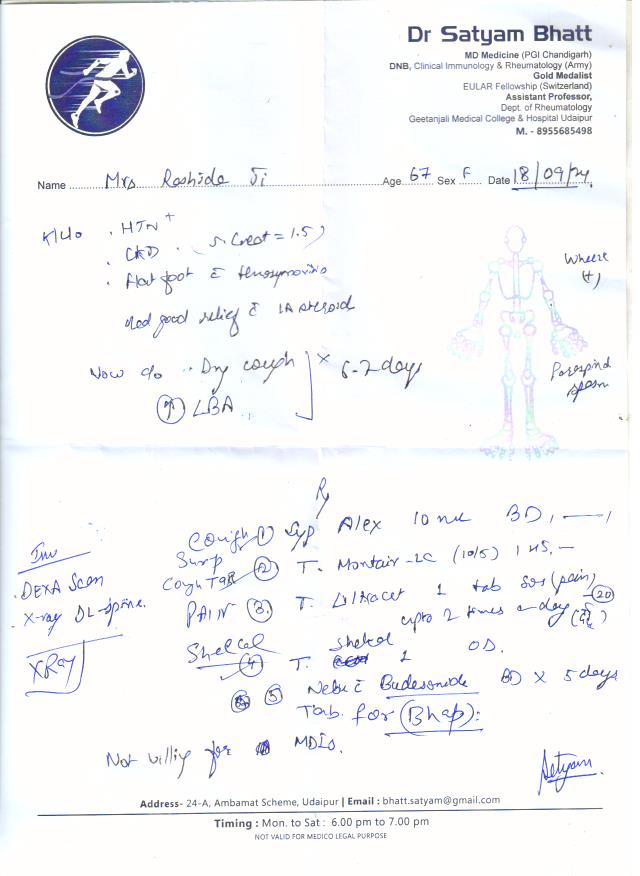 Dr Satyam Bhatt
MD Medicine (PGI Chandigarh)
DNB, Clinical Immunology & Rheumatology (Army)
Gold Medalist
EULAR Fellowship (Switzerland)
Assistant Professor,
Dept. of Rheumatology
Geetanjali Medical College & Hospital Udaipur
M. - 8955685498
Name Mrs Rashida Ji Age 67 Sex F Date 18/09/24
K/c/o . HTN +
. CKD . (S. Creat = 1.5)
. Flat foot c̄ tenosynovitis
good relief c̄ IA steroid
Wheeze
(+)
Now c/o . Dry cough
↑ LBA
x 6-7 days
Paraspinal
spasm
Rx
Cough 1) Syp Alex 10 ml BD,
Syrup
Cough Tab 2. T. Montair-LC (10/5) 1 HS.
PAIN 3. T. Ultracet 1 tab SOS (pain)
upto 2 times a day (20)
Shelcal
4 T. Shelcal 1 OD.
5 Neb c̄ Budesonide BD x 5 days
Tab. for (Bhap):
Inv
. DEXA Scan
. X-ray DL-spine.
X Ray
Not willing for MDIs.
Satyam
Address- 24-A, Ambamat Scheme, Udaipur | Email : bhatt.satyam@gmail.com
Timing : Mon. to Sat : 6.00 pm to 7.00 pm
NOT VALID FOR MEDICO LEGAL PURPOSE